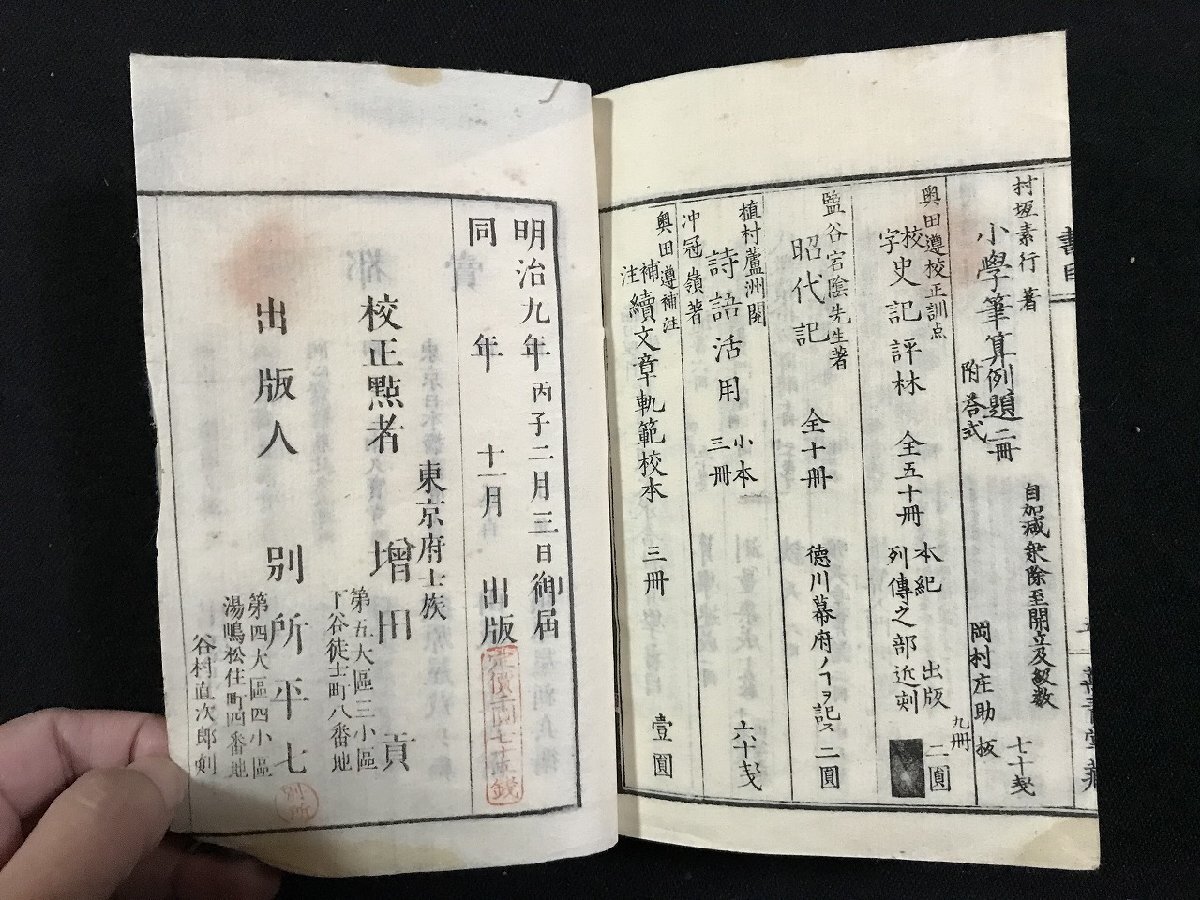 書目
村垣素行著
小學筆算例題二冊
附荅式
自加減乗除至開立及級数
岡村庄助板
七十戋
奥田遵校正訓点
校字史記評林
全五十冊
本紀
列傳之部近刻
出版
九冊
二圓
鹽谷宕陰先生著
昭代記
全十冊
徳川幕府ノヿヲ記ス
二圓
植村蘆洲閲
沖冠嶺著
詩語活用
小本
三冊
六十戋
奥田遵補注
補注續文章軌範校本
三冊
壹圓
明治九年丙子二月三日御届
同年十一月出版
定價
東京府士族
校正點者
増田貢
第五大區三小區
下谷徒士町八番地
出版人
別所平七
第四大區四小區
湯嶋松住町四番地
谷村直次郎刻
別所